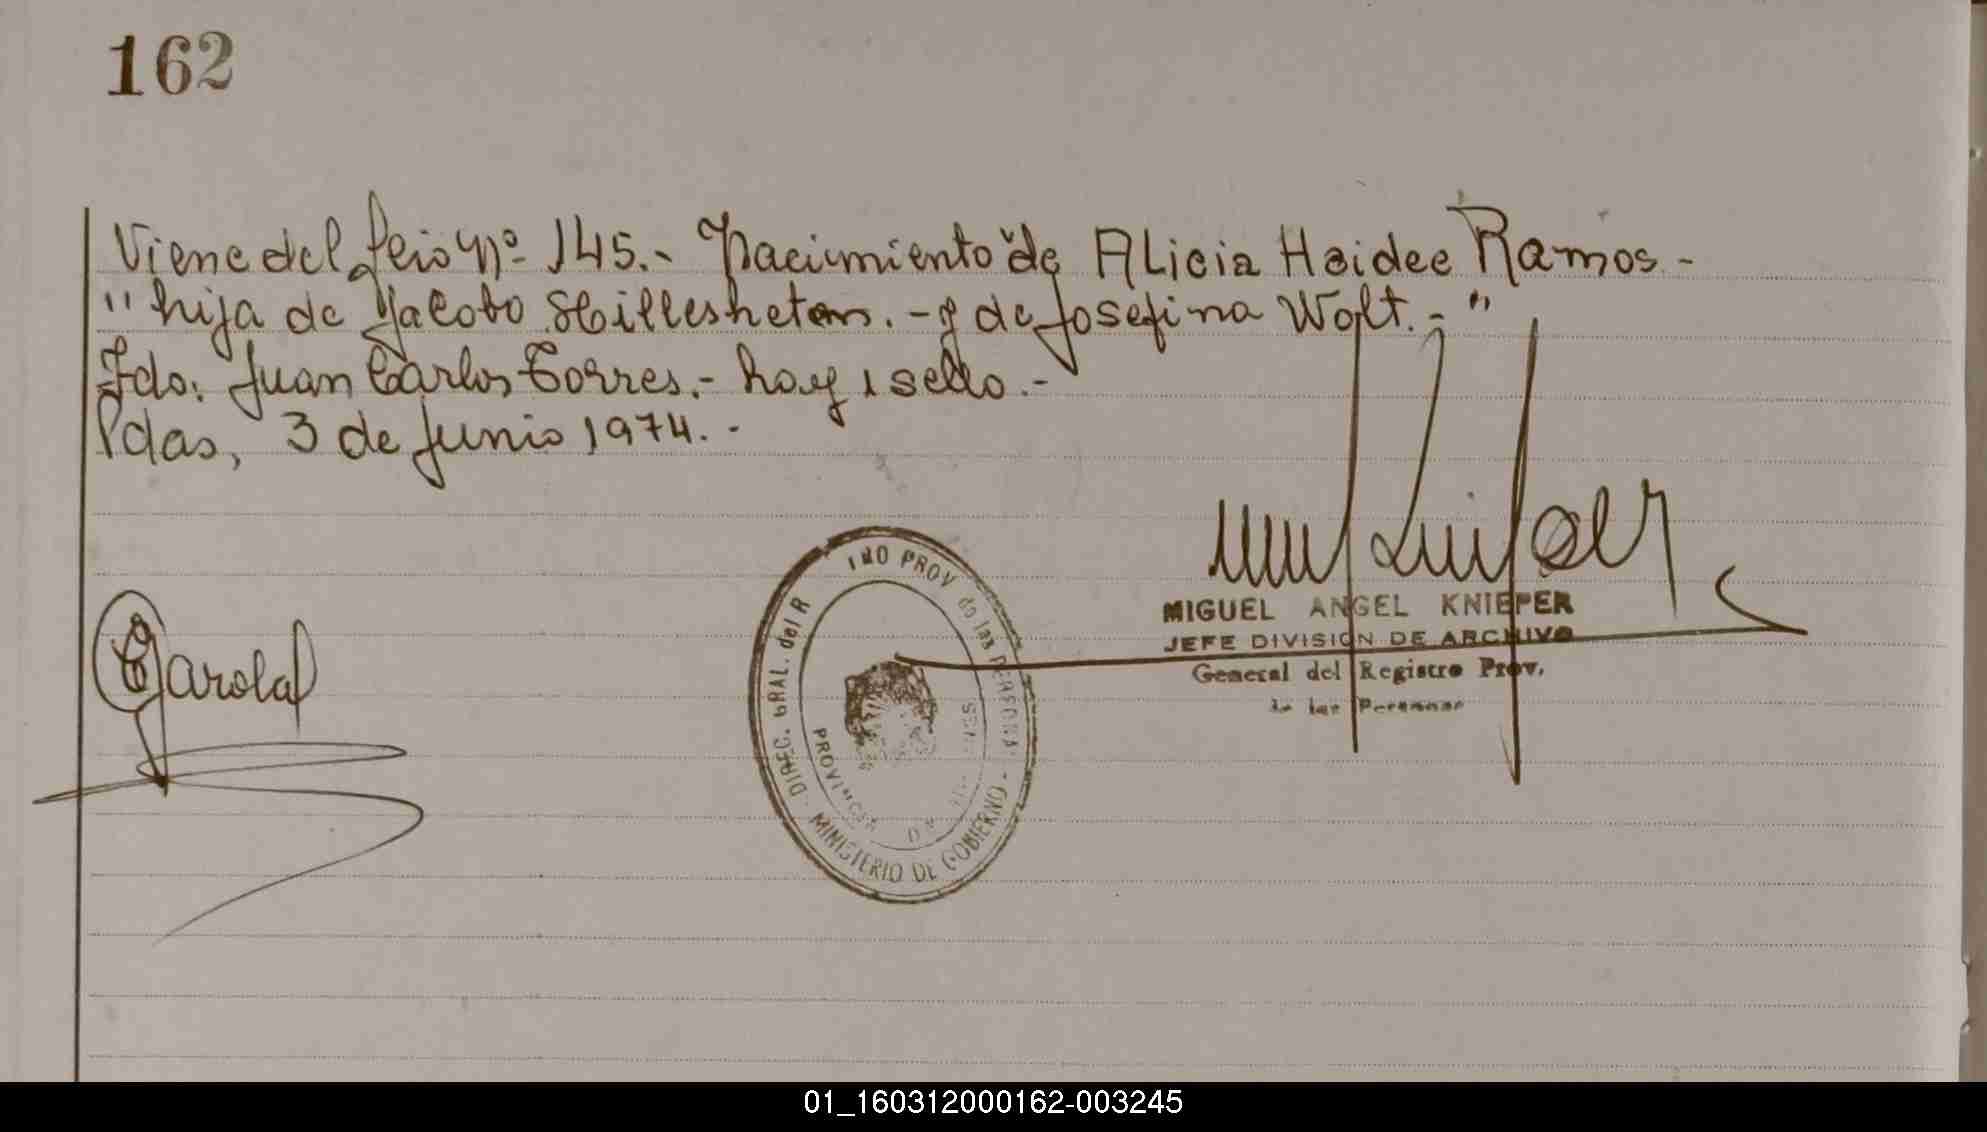 162
Viene del folio Nº 145.- Nacimiento de Alicia Haidee Ramos.-
" hija de Jacobo Hilleshetem. - y de Josefina Wolt. - "
Fdo. Juan Carlos Torres.- hay 1 sello.-
Pdas, 3 de Junio 1974.-
MIGUEL ANGEL KNIEPER
JEFE DIVISION DE ARCHIVO
General del Registro Prov.
de las Personas
DIREC. GRAL. del R PROV de las PERSONAS - MINISTERIO DE GOBIERNO -
01_160312000162-003245